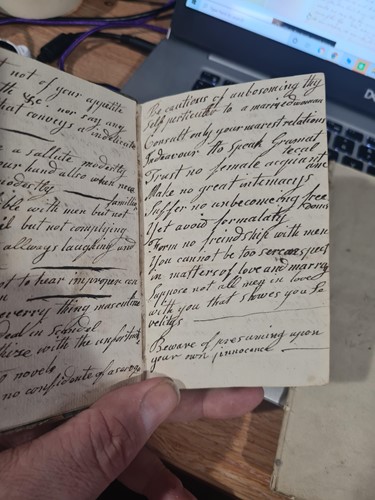 not of your appetite
nor say any
that conveys a indelicate
a sallute modestly
your hand also when new
modestly
familliar
ible with men but not
il but not complying
allways laughing and
not to hear improper con
everry thing masculine
deal in scandal
with the unfortunate
novels
no confidente of a
Be cautious of unbosoming thy
self particular to a married woman
Consult only your nearest relations
Indeavour to speak Gramat
ical
Trust no female acquaint
Make no great intemacys
Suffer no unbecomeing free
doms
Yet avoid formalaty
Form no freindship with men
You cannot be too sercumspect
in matters of love and marry
Suppose not all men in love
with you that showes you
velitys
Beware of presuming upon
your own innocence